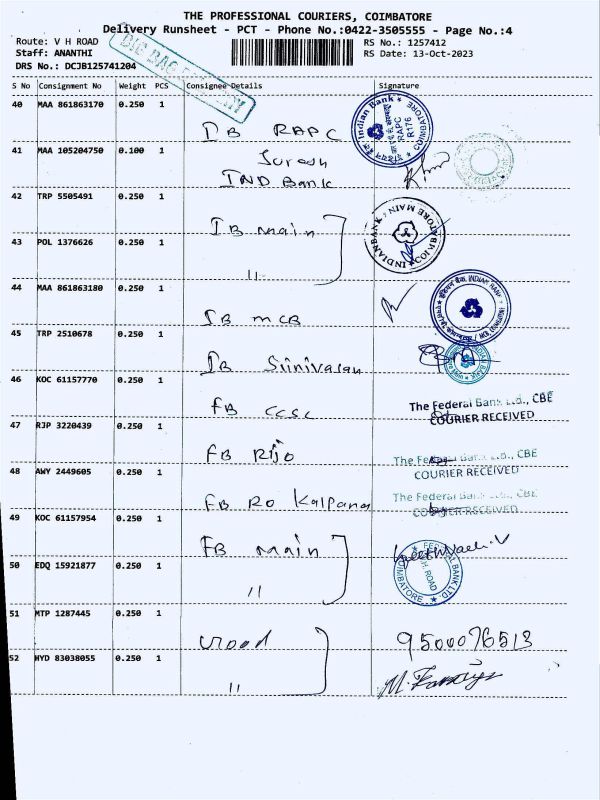 THE PROFESSIONAL COURIERS, COIMBATORE
Delivery Runsheet - PCT - Phone No.:0422-3505555 - Page No.:4
Route: V H ROAD
Staff: ANANTHI
DRS No.: DCJB125741204
RS No.: 1257412
RS Date: 13-Oct-2023
S No Consignment No Weight PCS Consignee Details Signature
40 MAA 861863170 0.250 1
IB RAPC
Indian Bank
RAPC
COIMBATORE
41 MAA 105204750 0.100 1
Suresh
IND Bank
42 TRP 5505491 0.250 1
IB main
INDIAN BANK
COIMBATORE MAIN
43 POL 1376626 0.250 1
"
44 MAA 861863180 0.250 1
IB MCB
INDIAN BANK
45 TRP 2510678 0.250 1
IB Srinivasan
46 KOC 61157770 0.250 1
FB CCSC
The Federal Bank Ltd., CBE
COURIER RECEIVED
47 RJP 3220439 0.250 1
FB Rijo
The Federal Bank Ltd., CBE
COURIER RECEIVED
48 AWY 2449605 0.250 1
FB RO Kalpana
The Federal Bank Ltd., CBE
COURIER RECEIVED
49 KOC 61157954 0.250 1
FB main
50 EDQ 15921877 0.250 1
"
FEDERAL BANK LTD
V.H. ROAD
COIMBATORE
51 MTP 1287445 0.250 1
9500076513
52 HYD 83038055 0.250 1
"